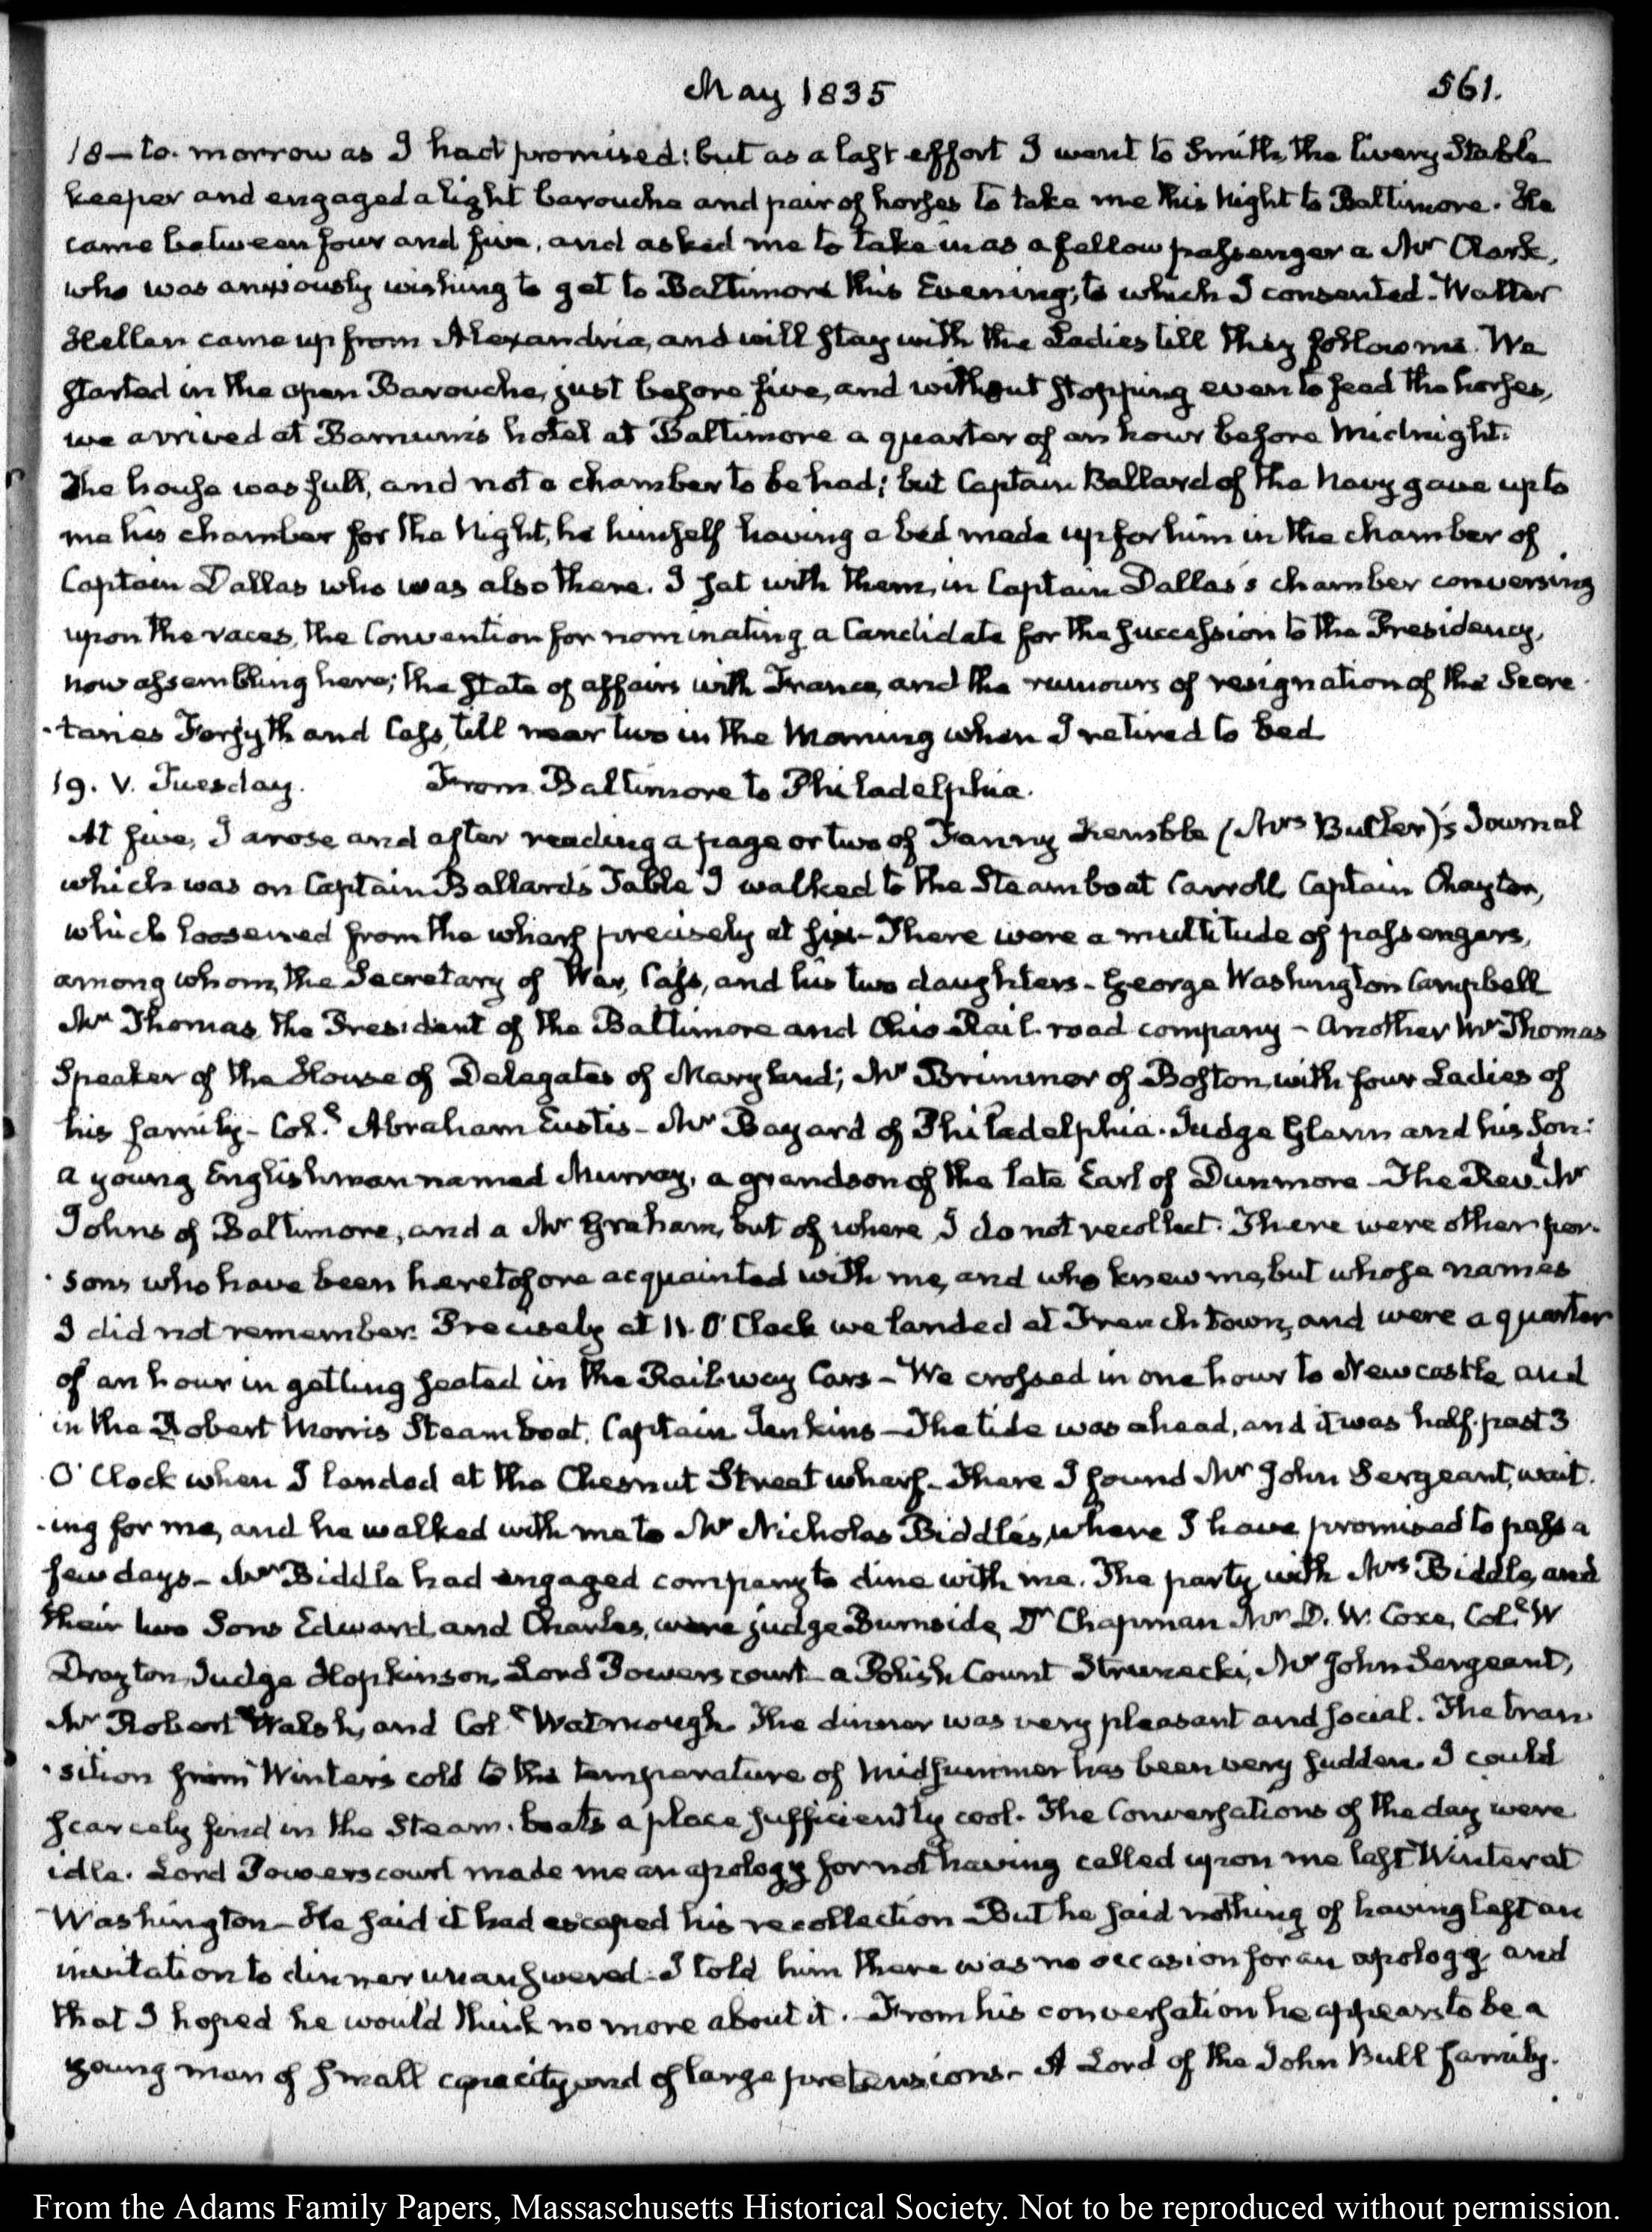 May 1835
561.
18 — to-morrow as I had promised: but as a last effort I went to Smith, the livery Stable
keeper and engaged a light barouche and pair of horses to take me this Night to Baltimore. He
came between four and five, and asked me to take in as a fellow passenger a Mr Clark,
who was anxiously wishing to get to Baltimore this Evening; to which I consented. Walter
Hellen came up from Alexandria, and will stay with the Ladies till they follow me. We
started in the open Barouche, just before five, and without stopping even to feed the horses,
we arrived at Barnum's hotel at Baltimore a quarter of an hour before Midnight.
The house was full, and not a chamber to be had; but Captain Ballard of the Navy gave up to
me his chamber for the Night, he himself having a bed made up for him in the chamber of
Captain Dallas who was also there. I sat with them, in Captain Dallas's chamber conversing
upon the races, the Convention for nominating a Candidate for the succession to the Presidency,
now assembling here; the state of affairs with France, and the rumours of resignation of the Secre-
-taries Forsyth and Cass, till near two in the Morning when I retired to bed
19. V. Tuesday. From Baltimore to Philadelphia.
At five, I arose and after reading a page or two of Fanny Kemble (Mrs Butler)'s Journal
which was on Captain Ballard's Table I walked to the Steamboat Carroll Captain Chaytor,
which loosened from the wharf precisely at six - There were a multitude of passengers,
among whom, the Secretary of War, Cass, and his two daughters - George Washington Campbell
Mr Thomas, the President of the Baltimore and Ohio Rail road company - another Mr Thomas
Speaker of the House of Delegates of Maryland; Mr Brimmer of Boston, with four Ladies of
his family - Col. Abraham Eustis - Mr Bayard of Philadelphia. Judge Glenn and his Son:
a young Englishman named Murray, a grandson of the late Earl of Dunmore - The Revd Mr
Johns of Baltimore, and a Mr Graham, but of where I do not recollect. There were other per-
-sons who have been heretofore acquainted with me, and who knew me, but whose names
I did not remember. Precisely at 11. O'Clock we landed at French town, and were a quarter
of an hour in getting seated in the Railway Cars - We crossed in one hour to Newcastle and
in the Robert Morris Steamboat, Captain Jenkins - The tide was ahead, and it was half-past 3
O'Clock when I landed at the Chesnut Street wharf - There I found Mr John Sergeant, wait-
-ing for me, and he walked with me to Mr Nicholas Biddle's, where I have promised to pass a
few days - Mr Biddle had engaged company to dine with me. The party with Mrs Biddle, and
their two Sons Edward, and Charles, were judge Burnside, Dr Chapman Mr D. W. Coxe, Col. W
Drayton, Judge Hopkinson, Lord Powerscourt - a Polish Count Mr John Sergeant,
Mr Robert Walsh, and Col. Watmough. The dinner was very pleasant and social. The tran-
-sition from Winter's cold to the temperature of Midsummer has been very sudden. I could
scarcely find in the Steam-boats a place sufficiently cool. The Conversations of the day were
idle. Lord Powerscourt made me an apology for not having called upon me last Winter at
Washington - He said it had escaped his recollection - But he said nothing of having left an
invitation to dinner unanswered - I told him there was no occasion for an apology and
that I hoped he would think no more about it. From his conversation he appears to be a
young man of small capacity and of large pretensions - A Lord of the John Bull family.
From the Adams Family Papers, Massaschusetts Historical Society. Not to be reproduced without permission.